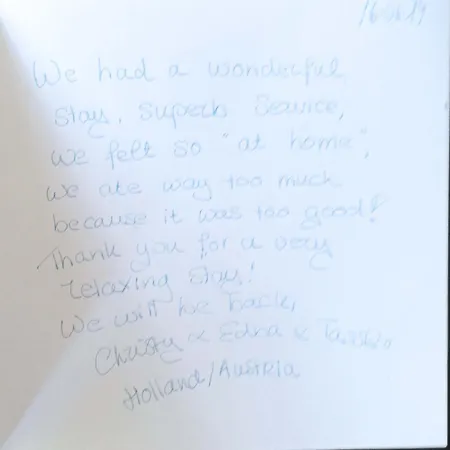 We had a wonderful
Stay, superb Service,
we felt so "at home",
we ate way too much
because it was too good!
Thank you for a very
relaxing stay!
We will be back,
Christy & Edna &
Holland/Austria